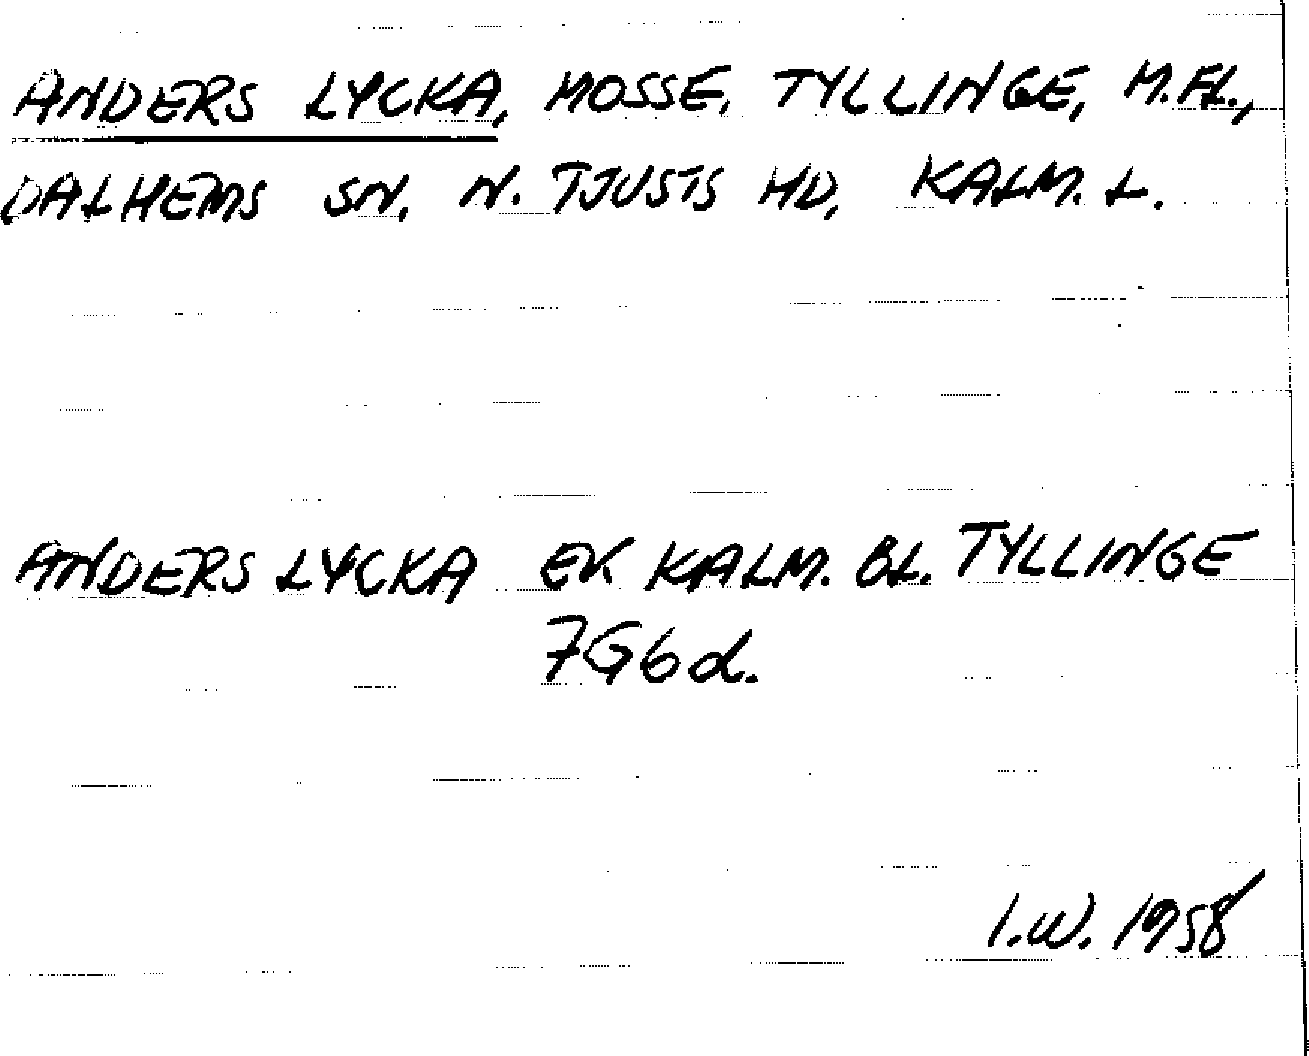 ANDERS LYCKA, MOSSE, TYLLINGE, M.FL.,
DALHEMS SN, N. TJUSTS HD, KALM. L.
ANDERS LYCKA EK KALM. BL. TYLLINGE
7G6d.
I.W. 1958